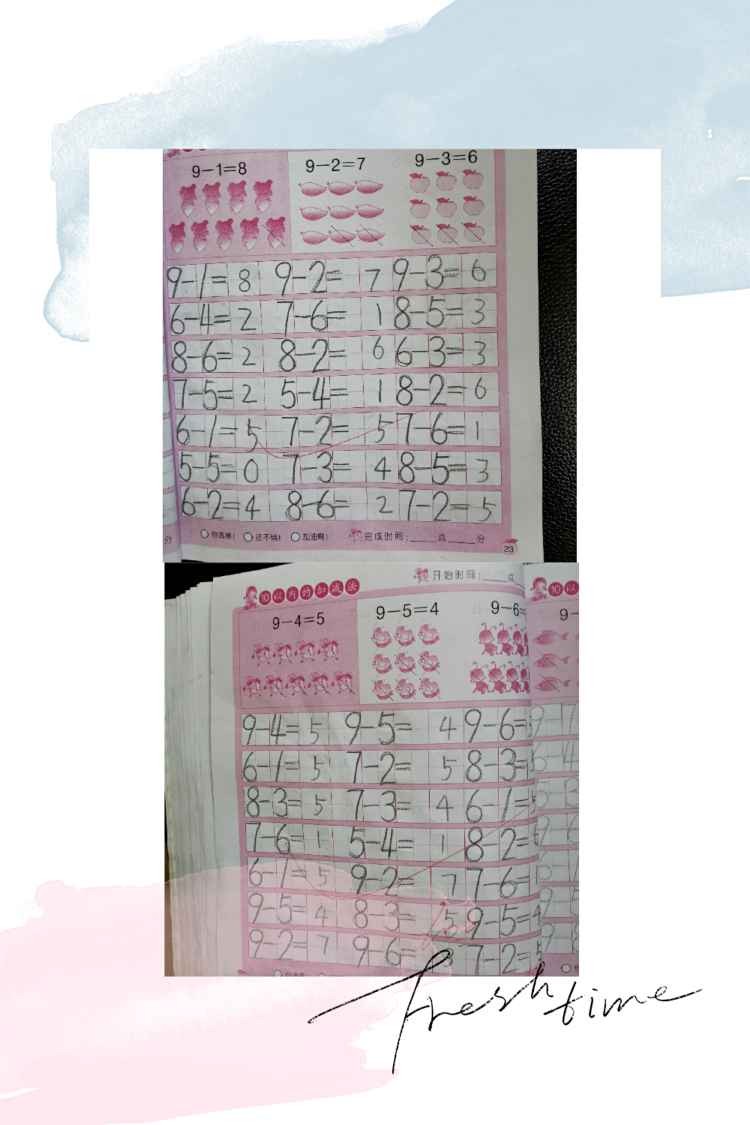 9－1=8 9－2=7 9－3=6
9-1=8 9-2=7 9-3=6
6-4=2 7-6=1 8-5=3
8-6=2 8-2=6 6-3=3
7-5=2 5-4=1 8-2=6
6-1=5 7-2=5 7-6=1
5-5=0 7-3=4 8-5=3
6-2=4 8-6=2 7-2=5
你真棒! 还不错! 加油啊! 完成时间:____点____分
23
开始时间:____点
10以内的加减法
9－4=5 9－5=4 9－6=
9-4=5 9-5=4 9-6=
6-1=5 7-2=5 8-3=
8-3=5 7-3=4 6-1=
7-6=1 5-4=1 8-2=
6-1=5 9-2=7 7-6=
9-5=4 8-3=5 9-5=
9-2=7 9-6= 7-2=
fresh time